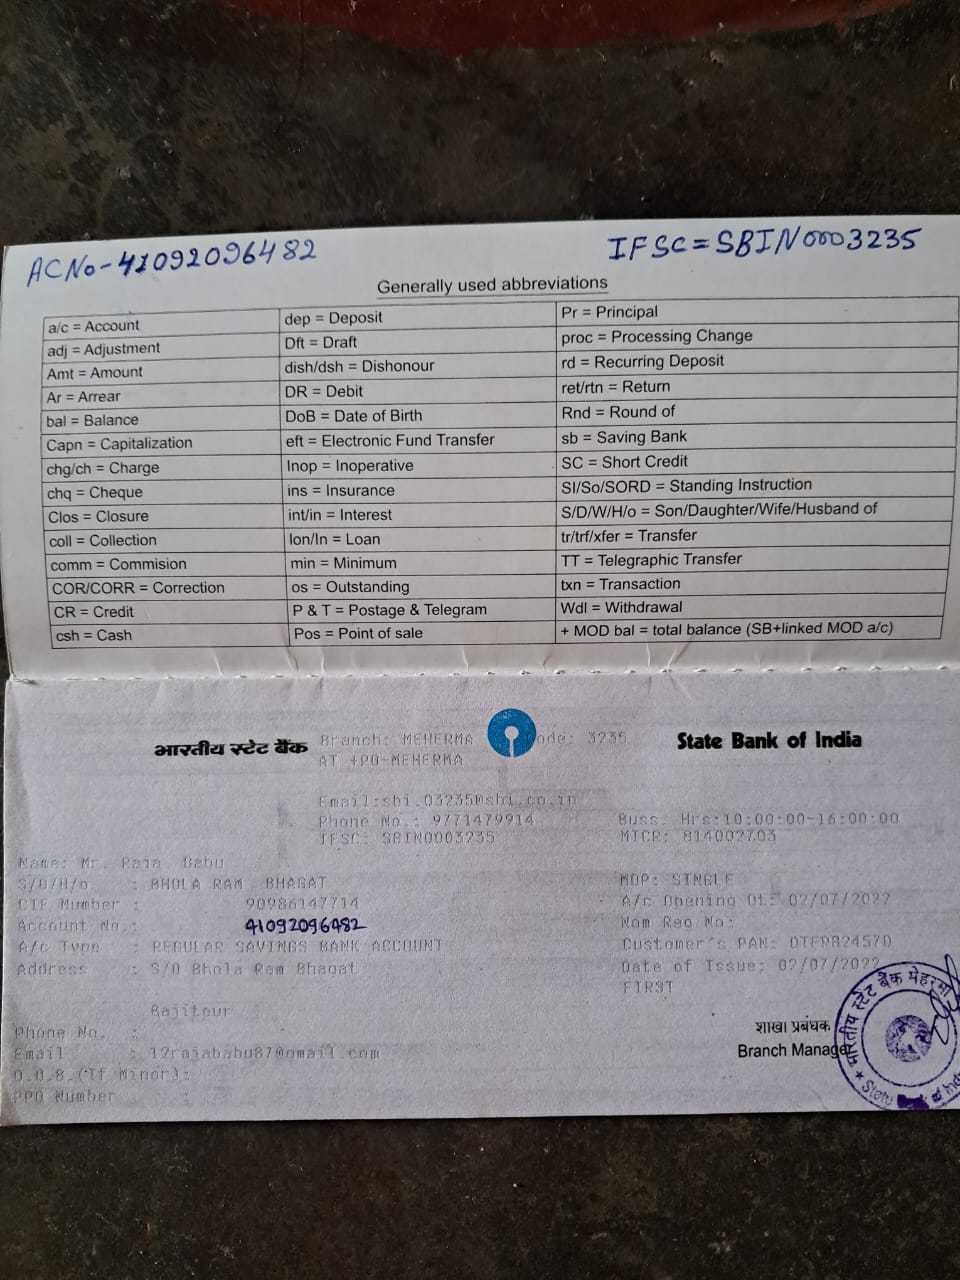 ACNo-41092096482
IFSC=SBIN0003235
Generally used abbreviations
a/c = Account
adj = Adjustment
Amt = Amount
Ar = Arrear
bal = Balance
Capn = Capitalization
chg/ch = Charge
chq = Cheque
Clos = Closure
coll = Collection
comm = Commision
COR/CORR = Correction
CR = Credit
csh = Cash
dep = Deposit
Dft = Draft
dish/dsh = Dishonour
DR = Debit
DoB = Date of Birth
eft = Electronic Fund Transfer
Inop = Inoperative
ins = Insurance
int/in = Interest
lon/ln = Loan
min = Minimum
os = Outstanding
P & T = Postage & Telegram
Pos = Point of sale
Pr = Principal
proc = Processing Change
rd = Recurring Deposit
ret/rtn = Return
Rnd = Round of
sb = Saving Bank
SC = Short Credit
SI/So/SORD = Standing Instruction
S/D/W/H/o = Son/Daughter/Wife/Husband of
tr/trf/xfer = Transfer
TT = Telegraphic Transfer
txn = Transaction
Wdl = Withdrawal
+ MOD bal = total balance (SB+linked MOD a/c)
भारतीय स्टेट बैंक
State Bank of India
Branch: MEHERMA
ode: 3235
AT +PO-MEHERMA
Email:sbi.03235@sbi.co.in
Phone No.: 9771479914
IFSC: SBIN0003235
Buss. Hrs:10:00:00-16:00:00
MICR: 814002703
Name: Mr. Raja Babu
S/D/H/o : BHOLA RAM BHAGAT
CIF Number : 90986147714
Account No.: 41092096482
A/c Type : REGULAR SAVINGS BANK ACCOUNT
Address : S/O Bhola Ram Bhagat
Bajitour
Phone No. :
Email : 12rajababu87@gmail.com
D.O.B.(If Minor):
PPO Number :
MOP: SINGLE
A/c Opening Dt: 02/07/2022
Nom Reg No:
Customer's PAN: DTFPB2457D
Date of Issue: 02/07/2022
FIRST
शाखा प्रबंधक
Branch Manager
भारतीय स्टेट बैंक मेहरमा